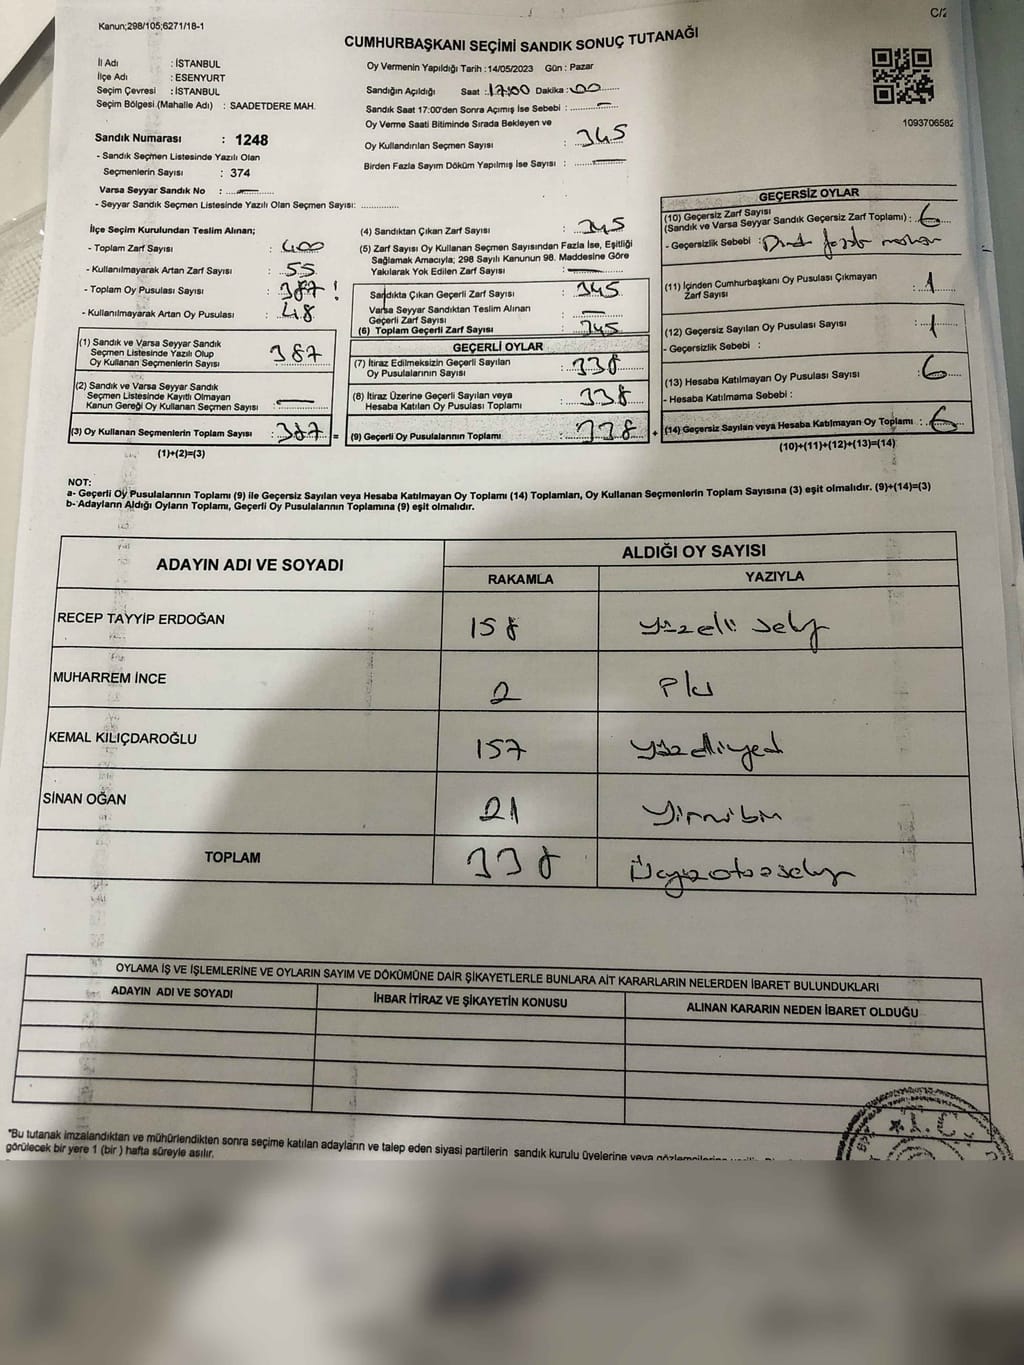 C/2
Kanun;298/105;6271/18-1
CUMHURBAŞKANI SEÇİMİ SANDIK SONUÇ TUTANAĞI
İl Adı : İSTANBUL
İlçe Adı : ESENYURT
Seçim Çevresi : İSTANBUL
Seçim Bölgesi (Mahalle Adı) : SAADETDERE MAH.
Sandık Numarası : 1248
- Sandık Seçmen Listesinde Yazılı Olan
Seçmenlerin Sayısı : 374
Varsa Seyyar Sandık No :
- Seyyar Sandık Seçmen Listesinde Yazılı Olan Seçmen Sayısı: ..............
Oy Vermenin Yapıldığı Tarih :14/05/2023 Gün : Pazar
Sandığın Açıldığı Saat :17:00 Dakika :00
Sandık Saat 17:00'den Sonra Açımış İse Sebebi :
Oy Verme Saati Bitiminde Sırada Bekleyen ve
Oy Kullandırılan Seçmen Sayısı : 345
Birden Fazla Sayım Döküm Yapılmış İse Sayısı :
1093706582
İlçe Seçim Kurulundan Teslim Alınan;
- Toplam Zarf Sayısı : 400
- Kullanılmayarak Artan Zarf Sayısı : 55
- Toplam Oy Pusulası Sayısı : 387 !
- Kullanılmayarak Artan Oy Pusulası : 48
(1) Sandık ve Varsa Seyyar Sandık
Seçmen Listesinde Yazılı Olup
Oy Kullanan Seçmenlerin Sayısı : 387
(2) Sandık ve Varsa Seyyar Sandık
Seçmen Listesinde Kayıtlı Olmayan
Kanun Gereği Oy Kullanan Seçmen Sayısı :
(3) Oy Kullanan Seçmenlerin Toplam Sayısı : 387 =
(1)+(2)=(3)
(4) Sandıktan Çıkan Zarf Sayısı : 345
(5) Zarf Sayısı Oy Kullanan Seçmen Sayısından Fazla İse, Eşitliği
Sağlamak Amacıyla; 298 Sayılı Kanunun 98. Maddesine Göre
Yakılarak Yok Edilen Zarf Sayısı :
Sandıkta Çıkan Geçerli Zarf Sayısı : 345
Varsa Seyyar Sandıktan Teslim Alınan
Geçerli Zarf Sayısı :
(6) Toplam Geçerli Zarf Sayısı : 345
GEÇERLİ OYLAR
(7) İtiraz Edilmeksizin Geçerli Sayılan
Oy Pusulalarının Sayısı : 338
(8) İtiraz Üzerine Geçerli Sayılan veya
Hesaba Katılan Oy Pusulası Toplamı : 338
(9) Geçerli Oy Pusulalarının Toplamı : 338 +
GEÇERSİZ OYLAR
(10) Geçersiz Zarf Sayısı
(Sandık ve Varsa Seyyar Sandık Geçersiz Zarf Toplamı) : 6
- Geçersizlik Sebebi :
(11) İçinden Cumhurbaşkanı Oy Pusulası Çıkmayan
Zarf Sayısı : 1
(12) Geçersiz Sayılan Oy Pusulası Sayısı : 1
- Geçersizlik Sebebi :
(13) Hesaba Katılmayan Oy Pusulası Sayısı : 6
- Hesaba Katılmama Sebebi :
(14) Geçersiz Sayılan veya Hesaba Katılmayan Oy Toplamı : 6
(10)+(11)+(12)+(13)=(14)
NOT:
a- Geçerli Oy Pusulalarının Toplamı (9) ile Geçersiz Sayılan veya Hesaba Katılmayan Oy Toplamı (14) Toplamları, Oy Kullanan Seçmenlerin Toplam Sayısına (3) eşit olmalıdır. (9)+(14)=(3)
b- Adayların Aldığı Oyların Toplamı, Geçerli Oy Pusulalarının Toplamına (9) eşit olmalıdır.
ADAYIN ADI VE SOYADI ALDIĞI OY SAYISI
RAKAMLA YAZIYLA
RECEP TAYYİP ERDOĞAN 158 yüzelli sekiz
MUHARREM İNCE 2 iki
KEMAL KILIÇDAROĞLU 157 yüzelliyedi
SİNAN OĞAN 21 yirmibir
TOPLAM 338 Üçyüzotuzsekiz
OYLAMA İŞ VE İŞLEMLERİNE VE OYLARIN SAYIM VE DÖKÜMÜNE DAİR ŞİKAYETLERLE BUNLARA AİT KARARLARIN NELERDEN İBARET BULUNDUKLARI
ADAYIN ADI VE SOYADI İHBAR İTİRAZ VE ŞİKAYETİN KONUSU ALINAN KARARIN NEDEN İBARET OLDUĞU
*Bu tutanak imzalandıktan ve mühürlendikten sonra seçime katılan adayların ve talep eden siyasi partilerin sandık kurulu üyelerine veya gözlemcilerine
görülecek bir yere 1 (bir) hafta süreyle asılır.
T.C.